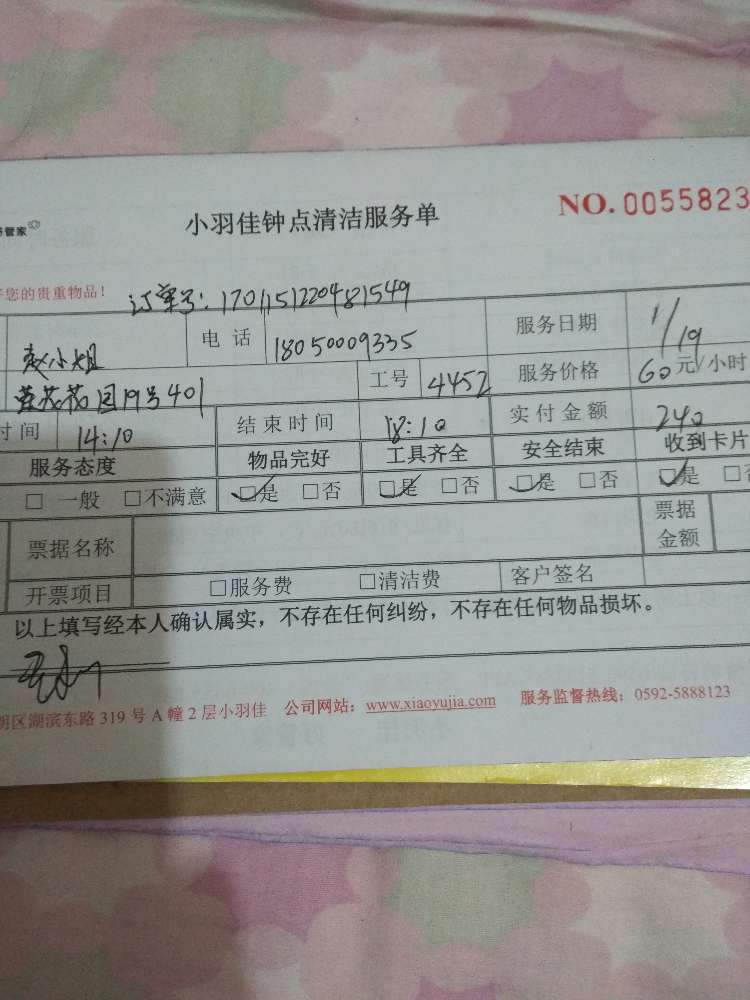 管家
小羽佳钟点清洁服务单
NO. 0055823
您的贵重物品!
订单号:1701151220481549
赵小姐 电话 18050009335 服务日期 1/19
莲花花园19号401 工号 4452 服务价格 60元/小时
时间 14:10 结束时间 18:10 实付金额 240
服务态度 物品完好 工具齐全 安全结束 收到卡片
□一般 □不满意 ☑是 □否 ☑是 □否 ☑是 □否 ☑是
票据名称 票据金额
开票项目 □服务费 □清洁费 客户签名
以上填写经本人确认属实,不存在任何纠纷,不存在任何物品损坏。
明区湖滨东路 319 号 A 幢 2 层小羽佳 公司网站:www.xiaoyujia.com 服务监督热线:0592-5888123